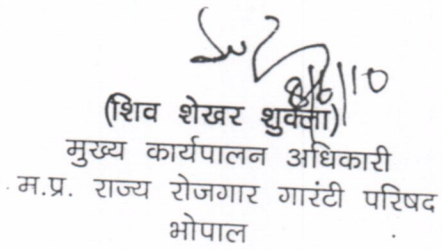 8/6/10
(शिव शेखर शुक्ला)
मुख्य कार्यपालन अधिकारी
म.प्र. राज्य रोजगार गारंटी परिषद
भोपाल